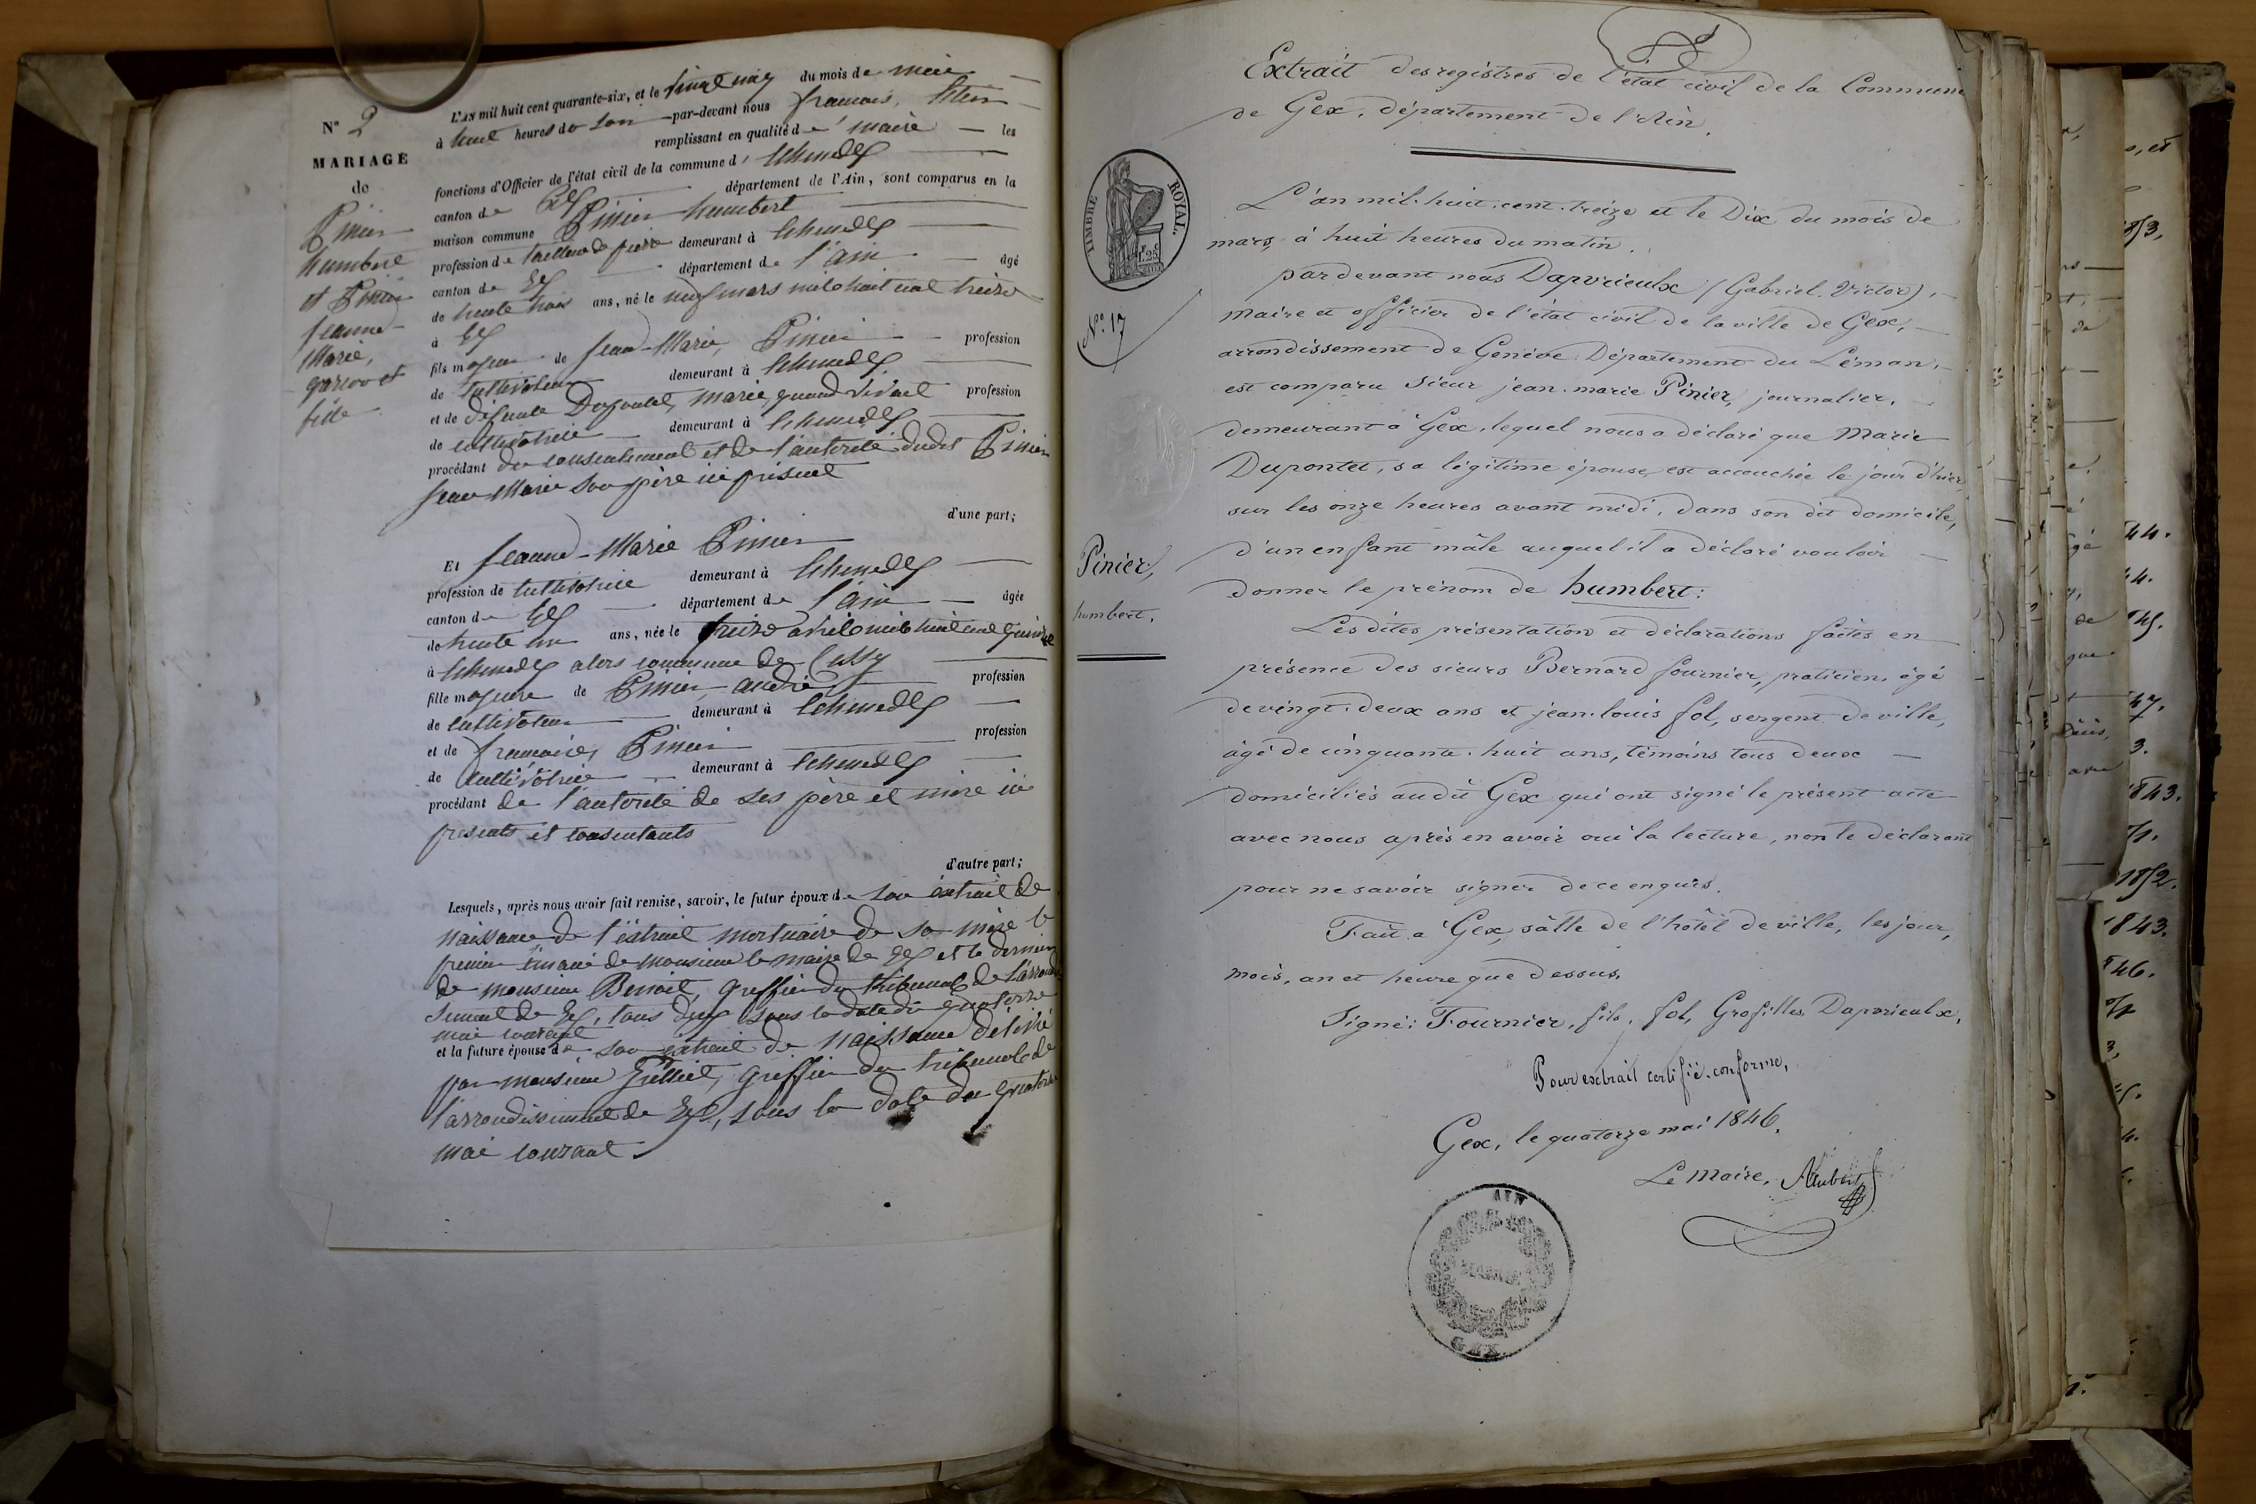 N° 2
MARIAGE
de
Pinier
humbert
et Pinier
jeanne-
Marie,
garcon et
fille
L'AN mil huit cent quarante-six, et le du mois de mai
à huit heures du soir par-devant nous francois,
remplissant en qualité de maire les
fonctions d'Officier de l'état civil de la commune d' Echenevex
canton de Gex département de l'Ain, sont comparus en la
maison commune Pinier humbert
profession de tailleur de pierre demeurant à Echenevex
canton de Gex département de l'ain âgé
de trente trois ans, né le neuf mars mil huit cent treize
à Gex
fils majeur de Jean-Marie, Pinier profession
de Cultivateur demeurant à Echenevex
et de défunte Dupontet, marie, quand vivait profession
de cultivatrice demeurant à Echenevex
procédant du consentement et de l'autorité dudit Pinier
Jean-Marie son père ici présent
d'une part;
Et Jeanne-Marie Pinier
profession de cultivatrice demeurant à Echenevex
canton de Gex département de l'ain âgée
de trente un ans, née le treize avril mil huit cent quinze
à Echenevex alors commune de Cessy
fille majeure de Pinier, andré profession
de cultivateur demeurant à Echenevex
et de francoise, Pinier profession
de cultivatrice demeurant à Echenevex
procédant de l'autorité de ses père et mère ici
présents et consentants
d'autre part;
Lesquels, après nous avoir fait remise, savoir, le futur époux de son extrait de
naissance de l'extrait mortuaire de sa mère le
premier émané de monsieur le maire de Gex et le dernier
de monsieur Benoit, greffier du tribunal de l'arrondis
sement de Gex, tous deux sous la date du quatorze
mai courant
et la future épouse de son extrait de naissance délivré
par monsieur greffier du tribunal de
l'arrondissement de Gex, sous la date du quatorze
mai courant
Extrait des registres de l'état civil de la Commune
de Gex, département de l'Ain.
TIMBRE ROYAL.
L'an mil huit cent treize et le Dix du mois de
mars, à huit heures du matin.
N° 17
par devant nous Daprieulx (Gabriel Victor),
maire et officier de l'état civil de la ville de Gex,
arrondissement de Genève Département du Léman,
est comparu sieur jean-marie Pinier, journalier,
demeurant à Gex, lequel nous a déclaré que Marie
Dupontet, sa légitime épouse, est accouchée le jour d'hier,
sur les onze heures avant midi, dans son dit domicile,
d'un enfant mâle auquel il a déclaré vouloir
Pinier,
humbert.
donner le prénom de humbert:
Les dites présentation et déclarations faites en
présence des sieurs Bernard fournier, praticien, âgé
de vingt-deux ans et jean-louis fol, sergent de ville,
âgé de cinquante-huit ans, témoins tous deux
domiciliés audit Gex qui ont signé le présent acte
avec nous après en avoir oui la lecture, non le déclarant
pour ne savoir signer de ce enquis.
Fait à Gex, salle de l'hôtel de ville, les jour,
mois, an et heure que dessus.
Signé: Fournier, fils, fol, Grosfilles Daprieulx,
Pour extrait certifié conforme,
Gex, le quatorze mai 1846.
Le Maire,
AIN
GEX